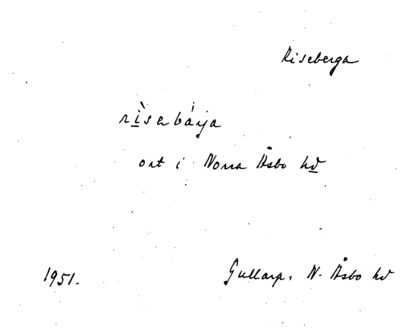 Riseberga
rìsabárja
ort i Norra Åsbo hd
1951. Gullarp. N. Åsbo hd